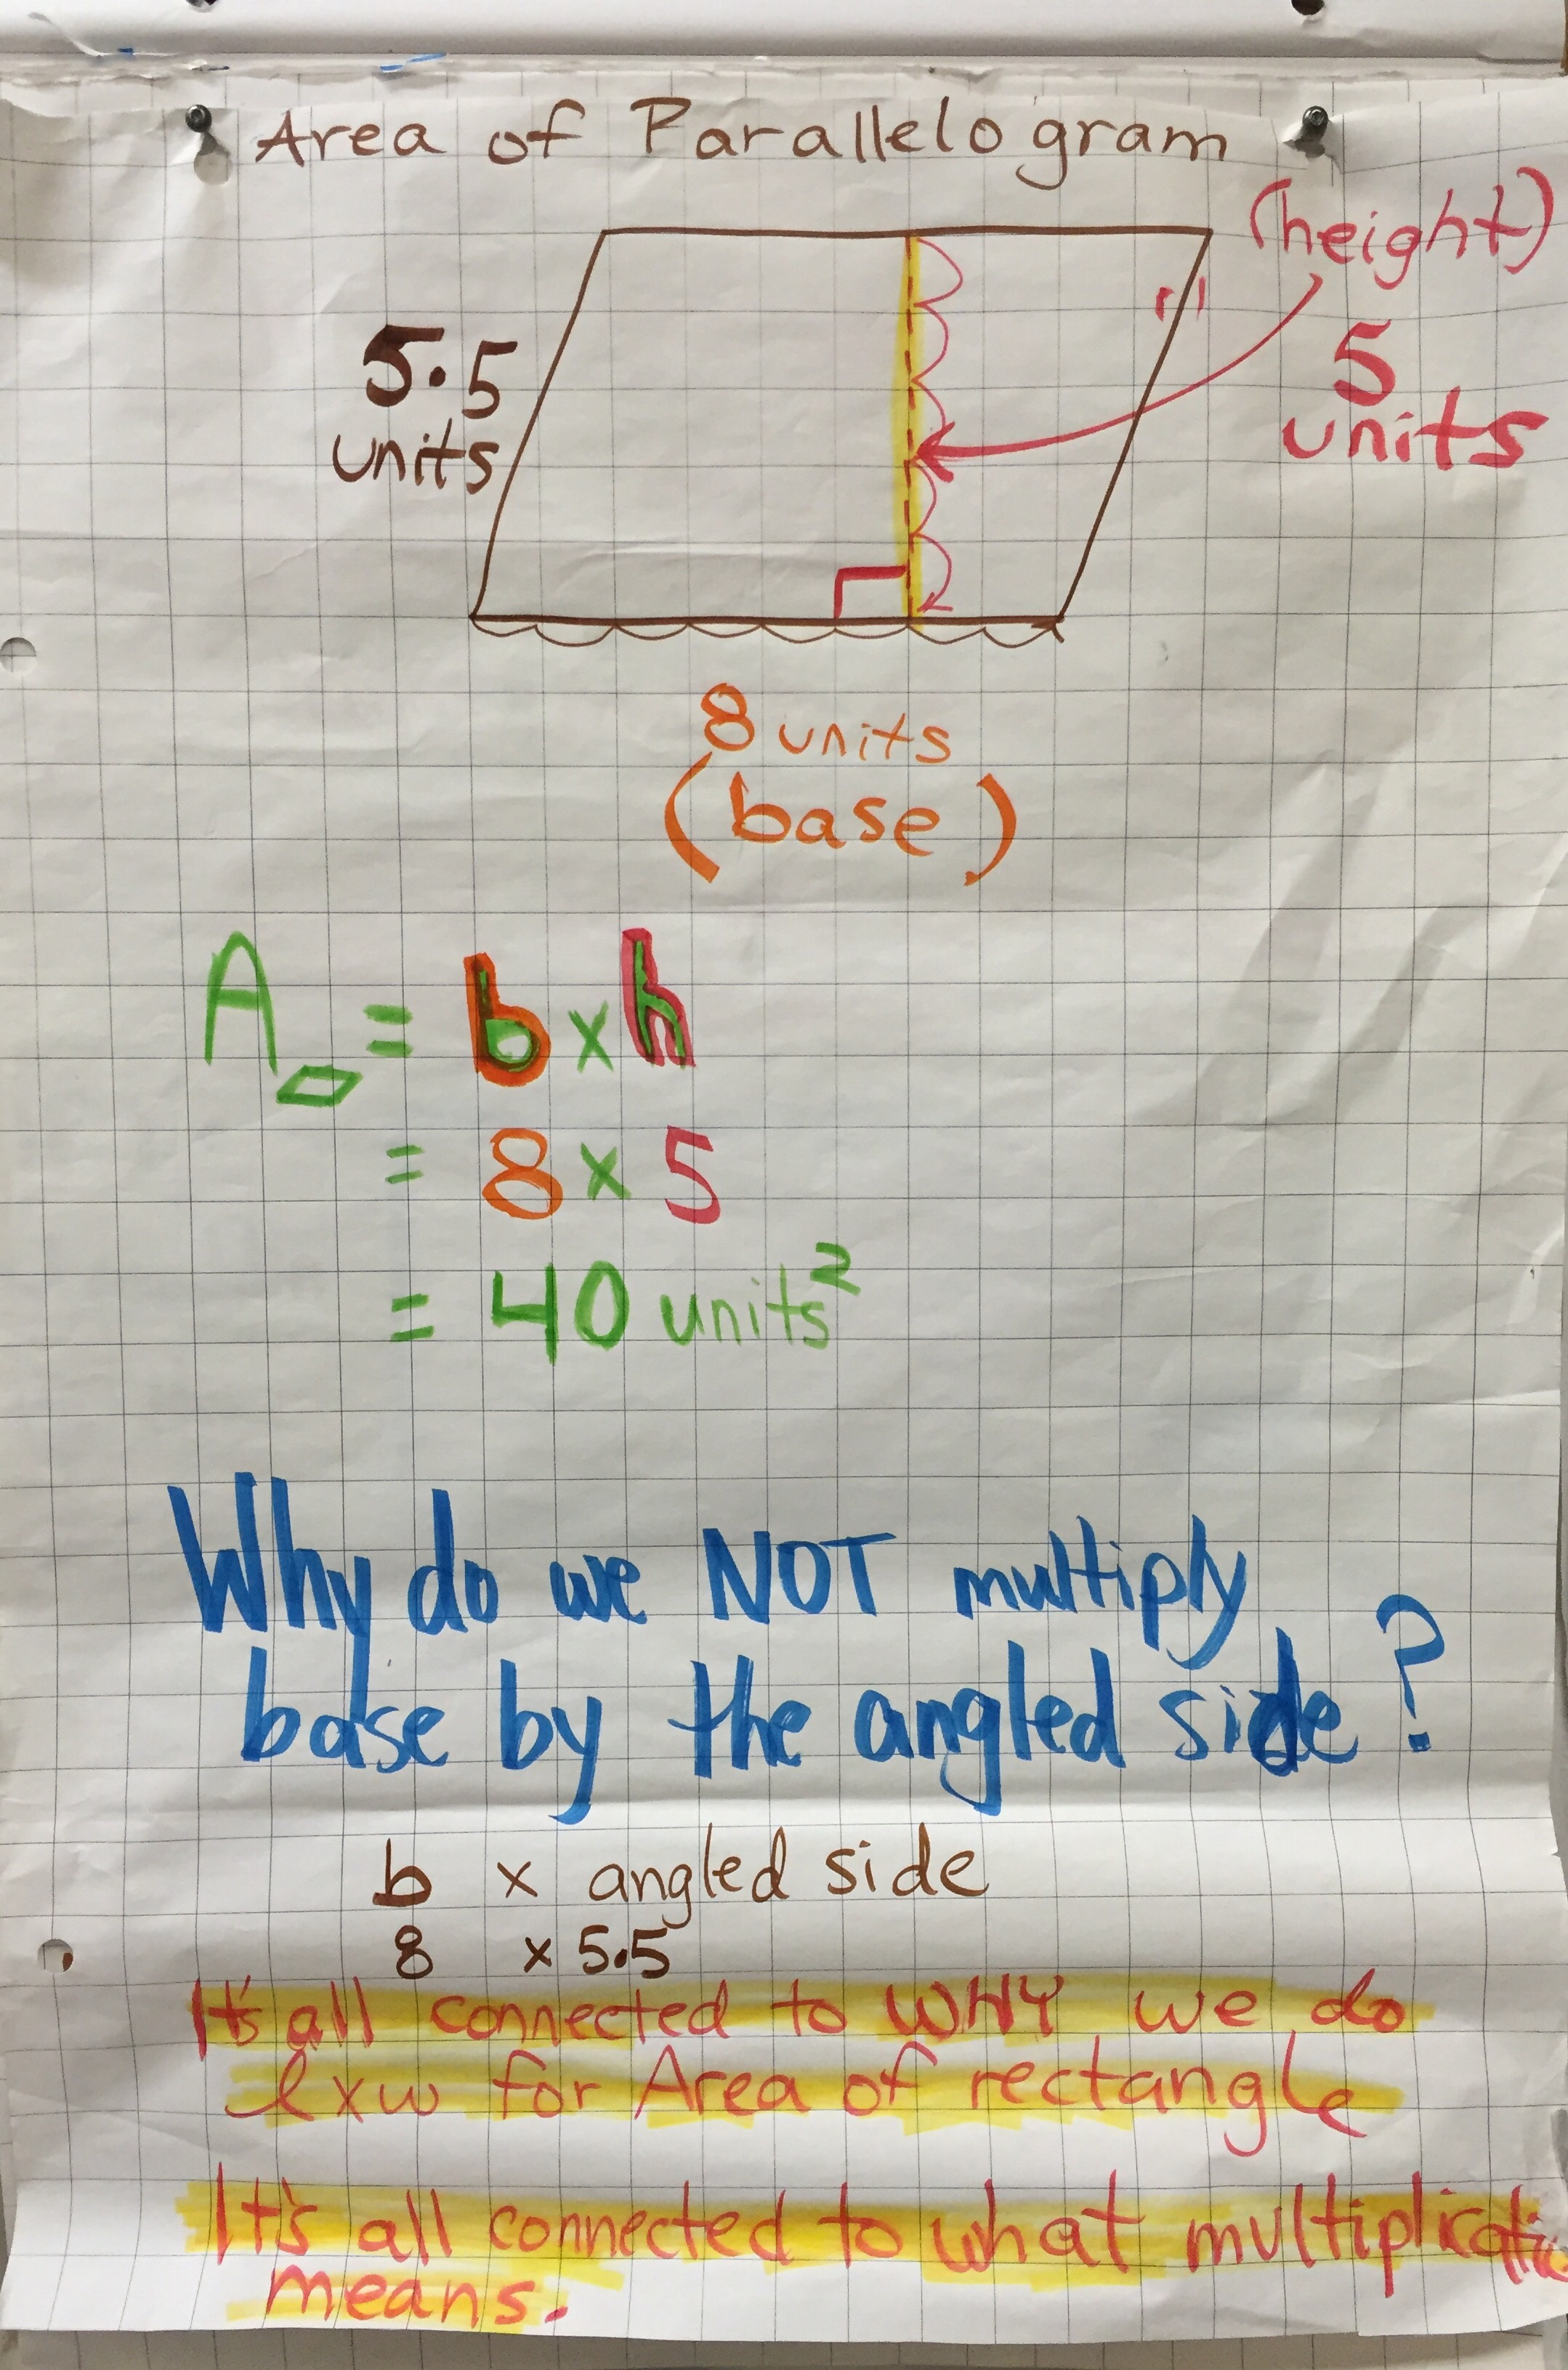 Area of Parallelogram
(height)
5
units
5.5
units
8 units
(base)
A▱ = b x h
= 8 x 5
= 40 units²
Why do we NOT multiply
base by the angled side?
b x angled side
8 x 5.5
It's all connected to WHY we do
l x w for Area of rectangle
It's all connected to what multiplicatio
means.